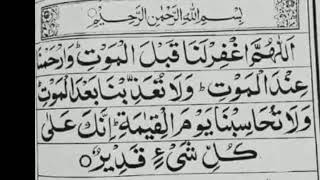 بِسْمِ اللهِ الرَّحْمٰنِ الرَّحِيْمِ
اَللّٰهُمَّ اغْفِرْلَنَا قَبْلَ الْمَوْتِ ط وَارْحَمْنَا
عِنْدَ الْمَوْتِ ط وَلَا تُعَذِّبْنَا بَعْدَ الْمَوْتِ
وَلَا تُحَاسِبْنَا يَوْمَ الْقِيٰمَةِ ط اِنَّكَ عَلٰى
كُلِّ شَىْءٍ قَدِيْرٌ ○